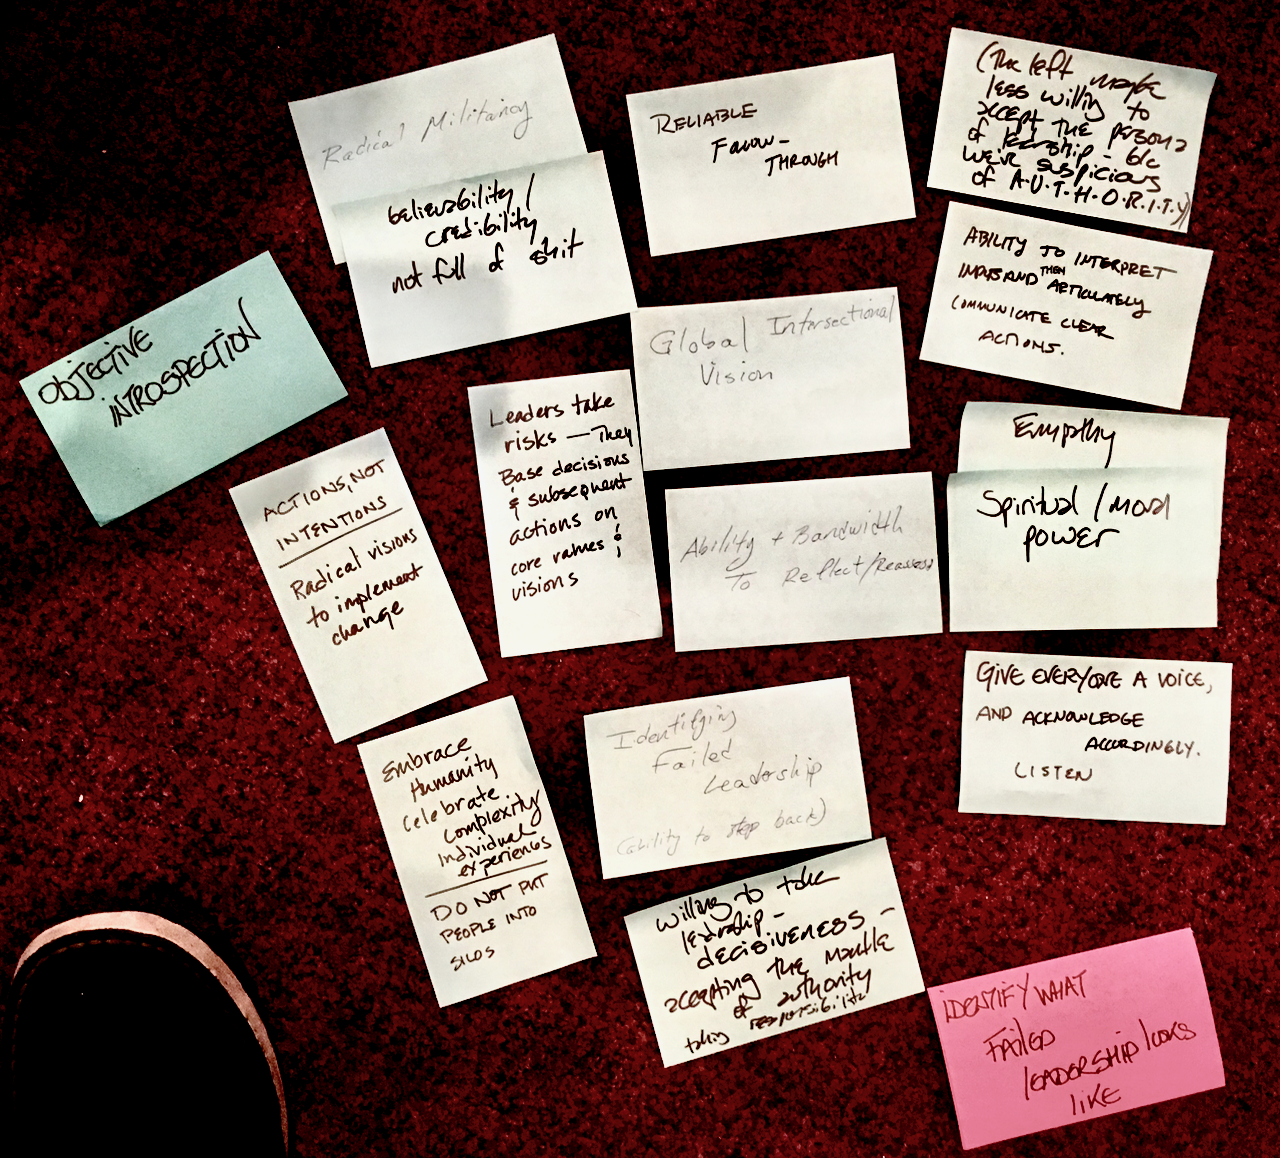 Radical Militancy
believability/
credibility
not full of shit
RELIABLE
FOLLOW-
THROUGH
(The left maybe
less willing to
accept the persona
of leadership - b/c
we're suspicious
of A.U.T.H.O.R.I.T.Y)
ABILITY TO INTERPRET
INPUTS AND THEN ARTICULATELY
COMMUNICATE CLEAR
ACTIONS.
OBJECTIVE
INTROSPECTION
Global Intersectional
Vision
Leaders take
risks — They
Base decisions
& subsequent
actions on
core values &
visions
Empathy
Spiritual/moral
power
ACTIONS, NOT
INTENTIONS
Radical visions
to implement
change
Ability + Bandwidth
To Reflect/Reassess
GIVE EVERYONE A VOICE,
AND ACKNOWLEDGE
ACCORDINGLY.
LISTEN
Embrace
Humanity
Celebrate
Complexity
Individual
experiences
DO NOT PUT
PEOPLE INTO
SILOS
Identifying
Failed
Leadership
(ability to step back)
willing to take
leadership -
decisiveness -
accepting the mantle
of authority
taking responsibility
IDENTIFY WHAT
FAILED
LEADERSHIP looks
like